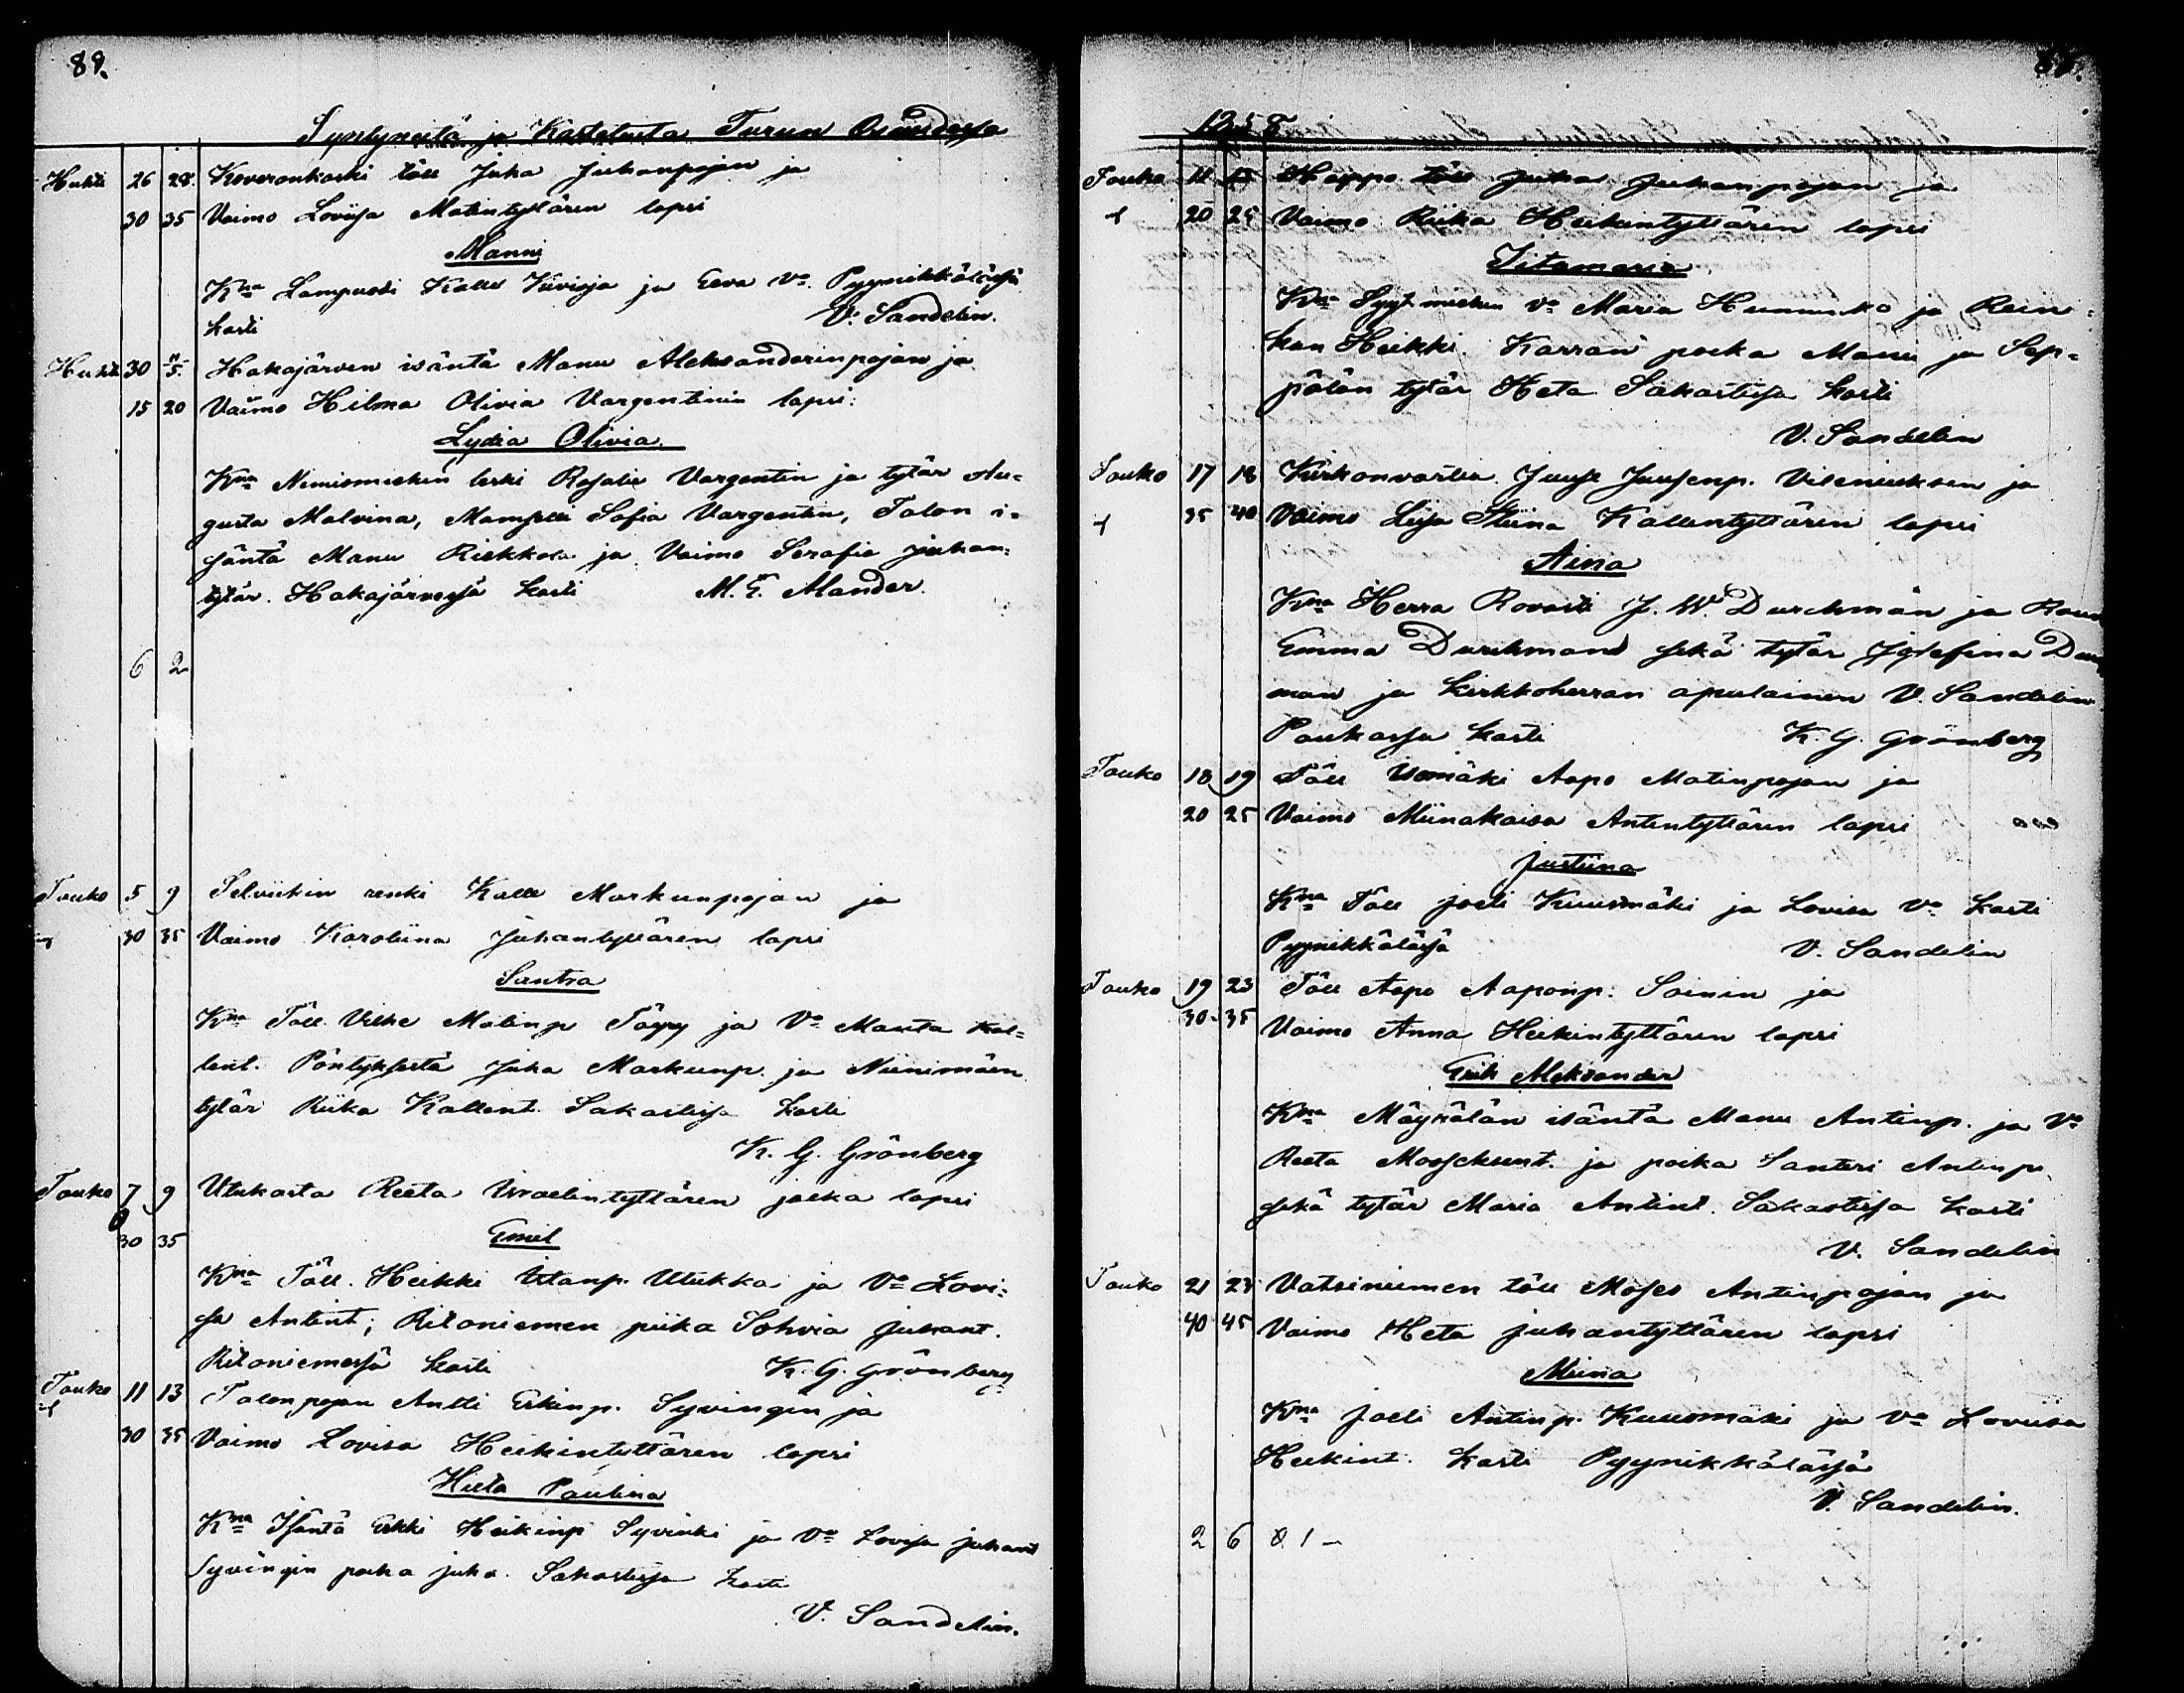 89.
Syntyneitä ja Kastetuita Turun
Huhti 26 28. Koveronkoski töll Juha Juhanpojan ja
30 35 Vaimo Loviisa Matintyttären lapsi
Manni
Kna Lampuodi Kalle ja Eeva Vo. Pyynikkälässä
kasti V. Sandelin.
Huhti 30 5/5 Hakajärven isäntä Manu Aleksanderinpojan ja
15 20 Vaimo Hilma Olivia Vargentinin lapsi:
Lydia Olivia.
Kna Nimismiehen leski Rosalie Vargentin ja tytär Au=
gusta Malvina, Mamselli Sofia Vargentin, Talon i=
säntä Manu Riekkola ja Vaimo Serafia Juhan=
tytär. Hakajärvessä kasti M. E. Mander.
6 2
Touko 5 9 Selviikin renki Kalle Markunpojan ja
30 35 Vaimo Karoliina Juhantyttären lapsi
Santra
Kna Töll. Vilhe Matinp Töyry ja Vo Manta Kal=
lent. Pöntyksestä Juha Markunp. ja Niinimäen
tytär Riika Kallent. Sakastissa kasti
K. G. Grönberg
Touko 7 9 Utukasta Reeta Israelintyttären jalka lapsi
30 35 Emil
Kna Töll. Heikki Iitanp. Utukka ja Vo Lovi=
sa Antint; Ritoniemen piika Sohvia Juhant.
Ritoniemessä kasti K. G. Grönberg
Touko 11 13 Talonpojan Antti Erkinp. Syvingin ja
30 35 Vaimo Lovisa Heikintyttären lapsi
Heeta Pauliina
Kna Isäntä Erkki Heikinp Syvinki ja Vo Lovisa Juhant
Syvingin poika Juha. Sakastissa kasti
V. Sandelin.
Touko Heippo töll Juha Juhanpojan ja
20 25 Vaimo Riika Heikintyttären lapsi
Iitamaria
Kna Syyt.miehen vo Maria Hunnukko ja Rein=
kan Heikki. Karran poika Manu ja Sep=
pälän tytär Heta Sakastissa kasti
V. Sandelin
Touko 17 18 Kirkonvartia Juuse Juusenp. Vileniuksen ja
35 40 Vaimo Liisa Stiina Kallentyttären lapsi
Aina
Kna Herra Rovasti J. W. Durchman ja Rouva
Emma Durchmand sekä tytär Josefina Dur
man ja kirkkoherran apulainen V. Sandelin
Paukassa kasti K. G. Grönberg
Touko 18 19 Töll Isomäki Aapo Matinpojan ja
20 25 Vaimo Miinakaisa Antintyttären lapsi
Justiina
Kna Töll Joeli Kuusmäki ja Lovisa Vo kasti
Pyynikkälässä V. Sandelin
Touko 19 23 Töll Aapo Aaponp. Soinin ja
30 35 Vaimo Anna Heikintyttären lapsi
Erik Aleksander
Kna Mäyrälän isäntä Manu Antinp. ja Vo
Reeta Mooseksent. ja poika Santeri Antinp.
sekä tytär Maria Antint. Sakastissa kasti
V. Sandelin
Touko 21 23 Vatsiniemen töll Moses Antinpojan ja
40 45 Vaimo Heta Juhantyttären lapsi
Miina
Kna Joeli Antinp. Kuusmäki ja vo Loviisa
Heikint. kasti Pyynikkälässä
V. Sandelin.
2 6 0 1 –